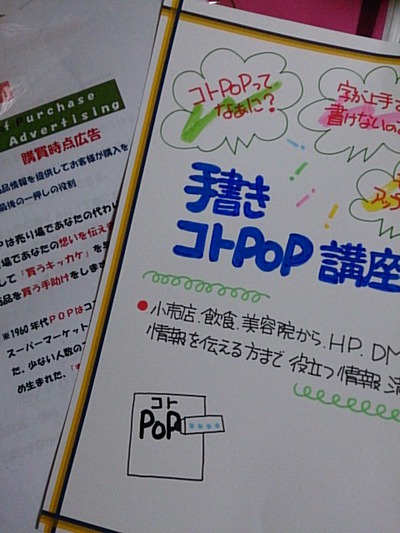 of Purchase
Advertising
購買時点広告
品情報を提供してお客様が購入を
最後の一押しの役割
は売り場であなたの代わ
場であなたの想いを伝え
して「買うキッカケ」を
商品を買う手助けをします
※1960年代POPはコ
スーパーマーケット
た。少ない人数の
め生まれた、
コトPOPって
なあに?
字が上手
書けないの
アッ
手書き
コトPOP 講座
●小売店.飲食.美容院から.HP.DM
情報を伝える方まで 役立つ情報 満
コト
POP